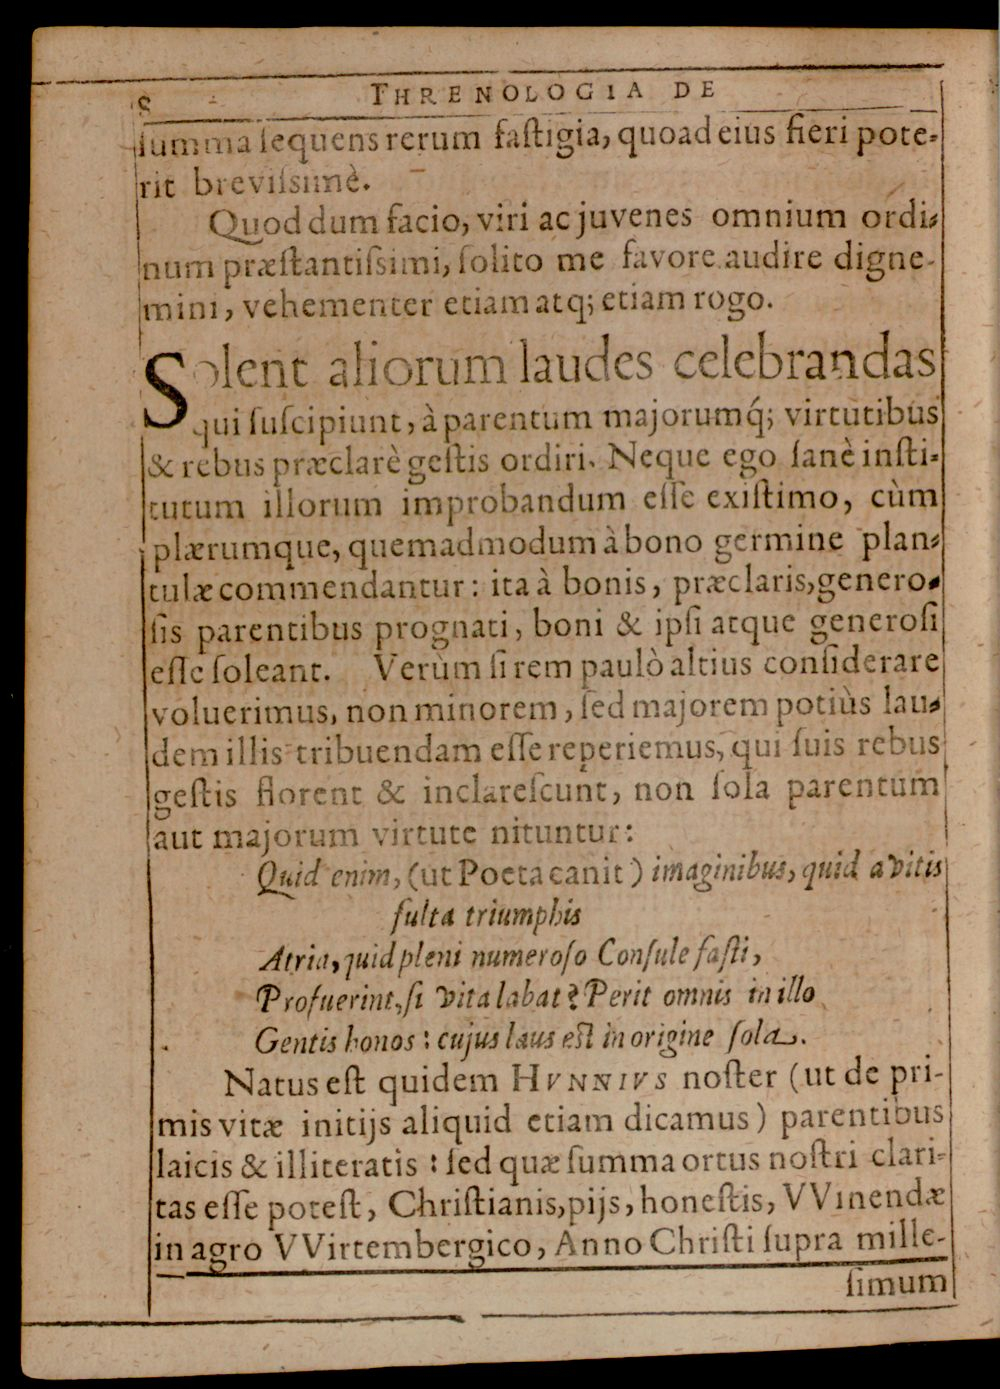 8 THRENOLOGIA DE
ſumma ſequens rerum faſtigia, quoad eius fieri pote-
rit breviſsimè.
Quod dum facio, viri ac juvenes omnium ordi-
num præſtantiſsimi, ſolito me favore audire digne-
mini, vehementer etiam atq; etiam rogo.
Solent aliorum laudes celebrandas
qui ſuſcipiunt, à parentum majorumq́; virtutibus
& rebus præclarè geſtis ordiri. Neque ego ſanè inſti-
tutum illorum improbandum eſſe exiſtimo, cùm
plærumque, quemadmodum à bono germine plan-
tulæ commendantur: ita à bonis, præclaris, genero-
ſis parentibus prognati, boni & ipſi atque generoſi
eſſe ſoleant. Verùm ſi rem paulò altius conſiderare
voluerimus, non minorem, ſed majorem potiùs lau-
dem illis tribuendam eſſe reperiemus, qui ſuis rebus
geſtis florent & inclareſcunt, non ſola parentum
aut majorum virtute nituntur:
Quid enim, (ut Poeta canit) imaginibus, quid avitis
fulta triumphis
Atria, quid pleni numeroſo Conſule faſti,
Profuerint, ſi vita labat? Perit omnis in illo
Gentis honos: cujus laus eſt in origine ſola.
Natus eſt quidem HVNNIVS noſter (ut de pri-
mis vitæ initijs aliquid etiam dicamus) parentibus
laicis & illiteratis: ſed quæ ſumma ortus noſtri clari-
tas eſſe poteſt, Chriſtianis, pijs, honeſtis, VVinendæ
in agro VVirtembergico, Anno Chriſti ſupra mille-
ſimum